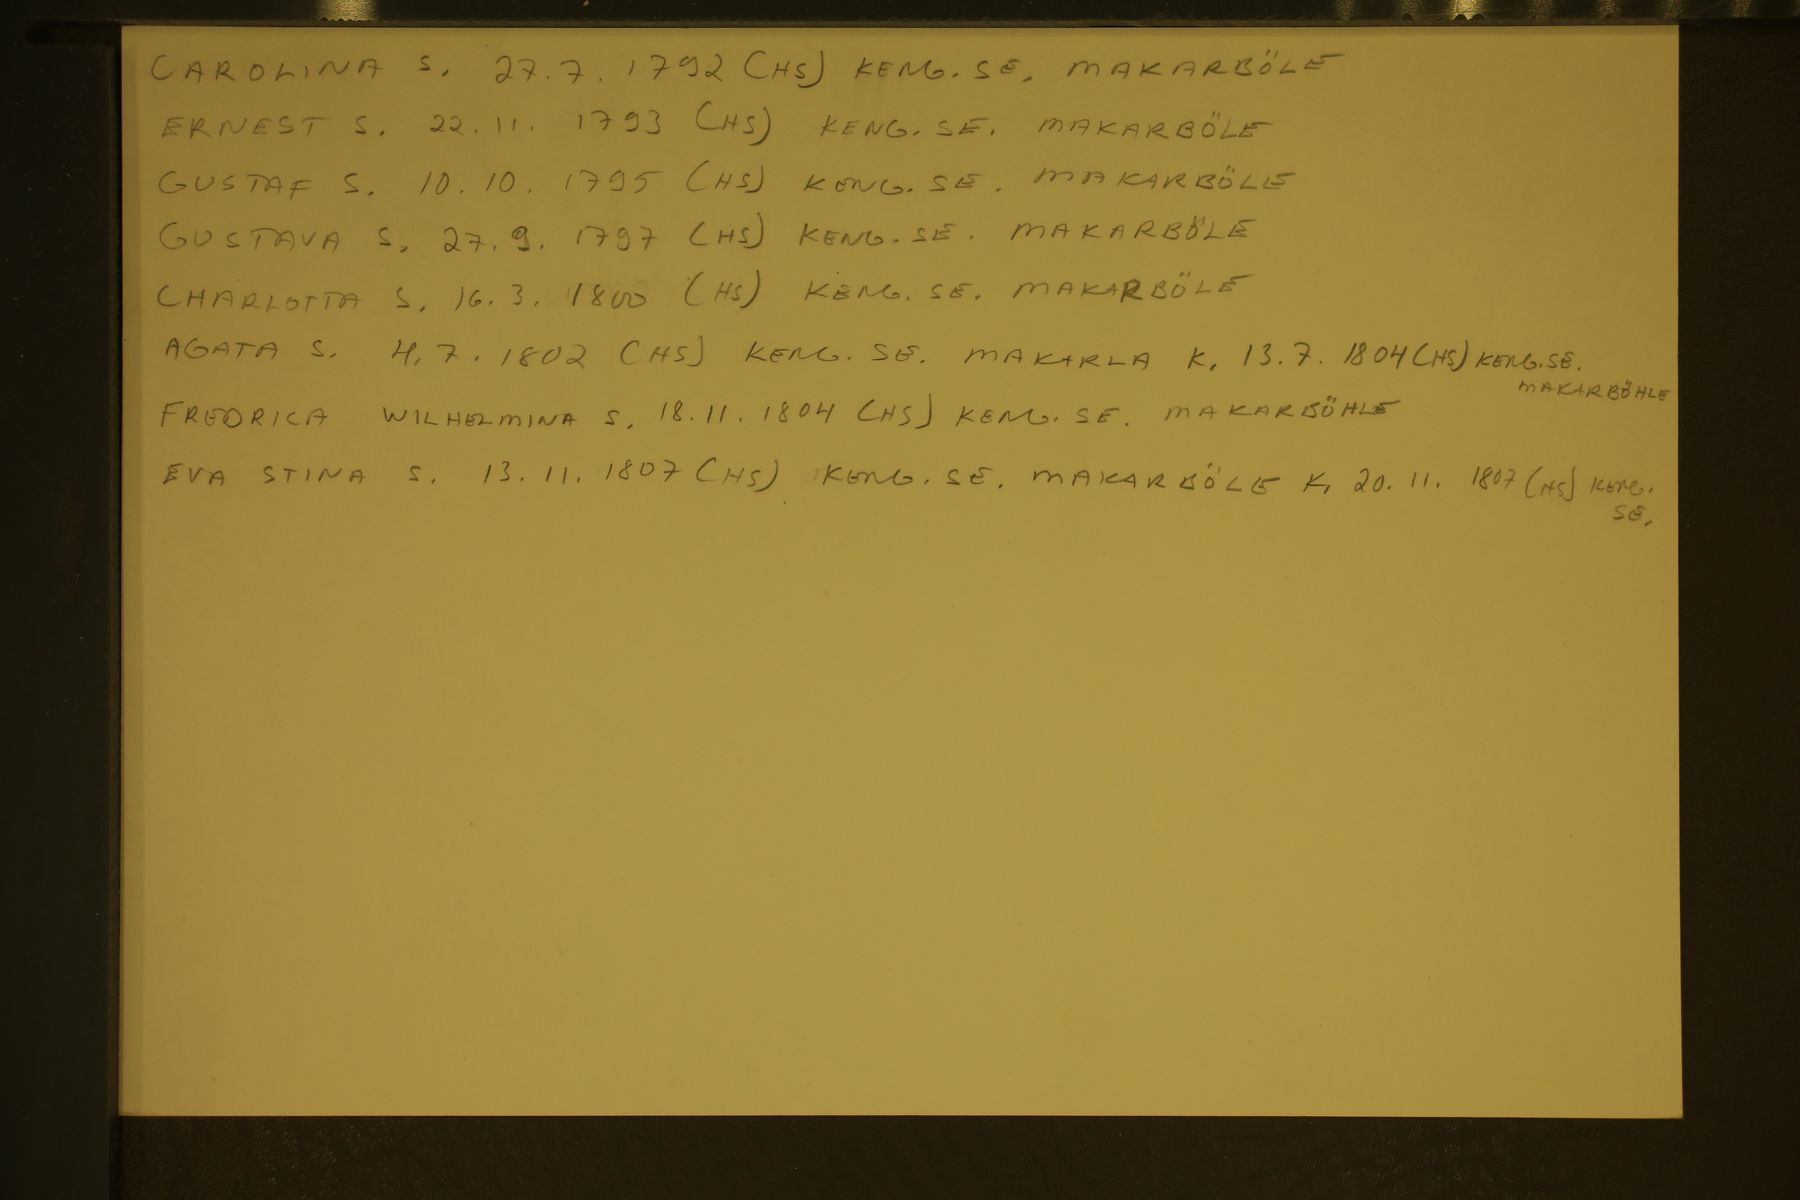 CAROLINA S. 27.7. 1792 (HS) KENG. SE. MAKARBÖLE
ERNEST S. 22.11. 1793 (HS) KENG. SE. MAKARBÖLE
GUSTAF S. 10.10. 1795 (HS) KENG. SE. MAKARBÖLE
GUSTAVA S. 27.9. 1797 (HS) KENG. SE. MAKARBÖLE
CHARLOTTA S. 16.3. 1800 (HS) KENG. SE. MAKARBÖLE
AGATA S. 4.7. 1802 (HS) KENG. SE. MAKARLA K. 13.7. 1804 (HS) KENG. SE.
MAKARBÖHLE
FREDRICA WILHELMINA S. 18.11. 1804 (HS) KENG. SE. MAKARBÖHLE
EVA STINA S. 13.11. 1807 (HS) KENG. SE. MAKARBÖLE K. 20.11. 1807 (HS) KENG.
SE.